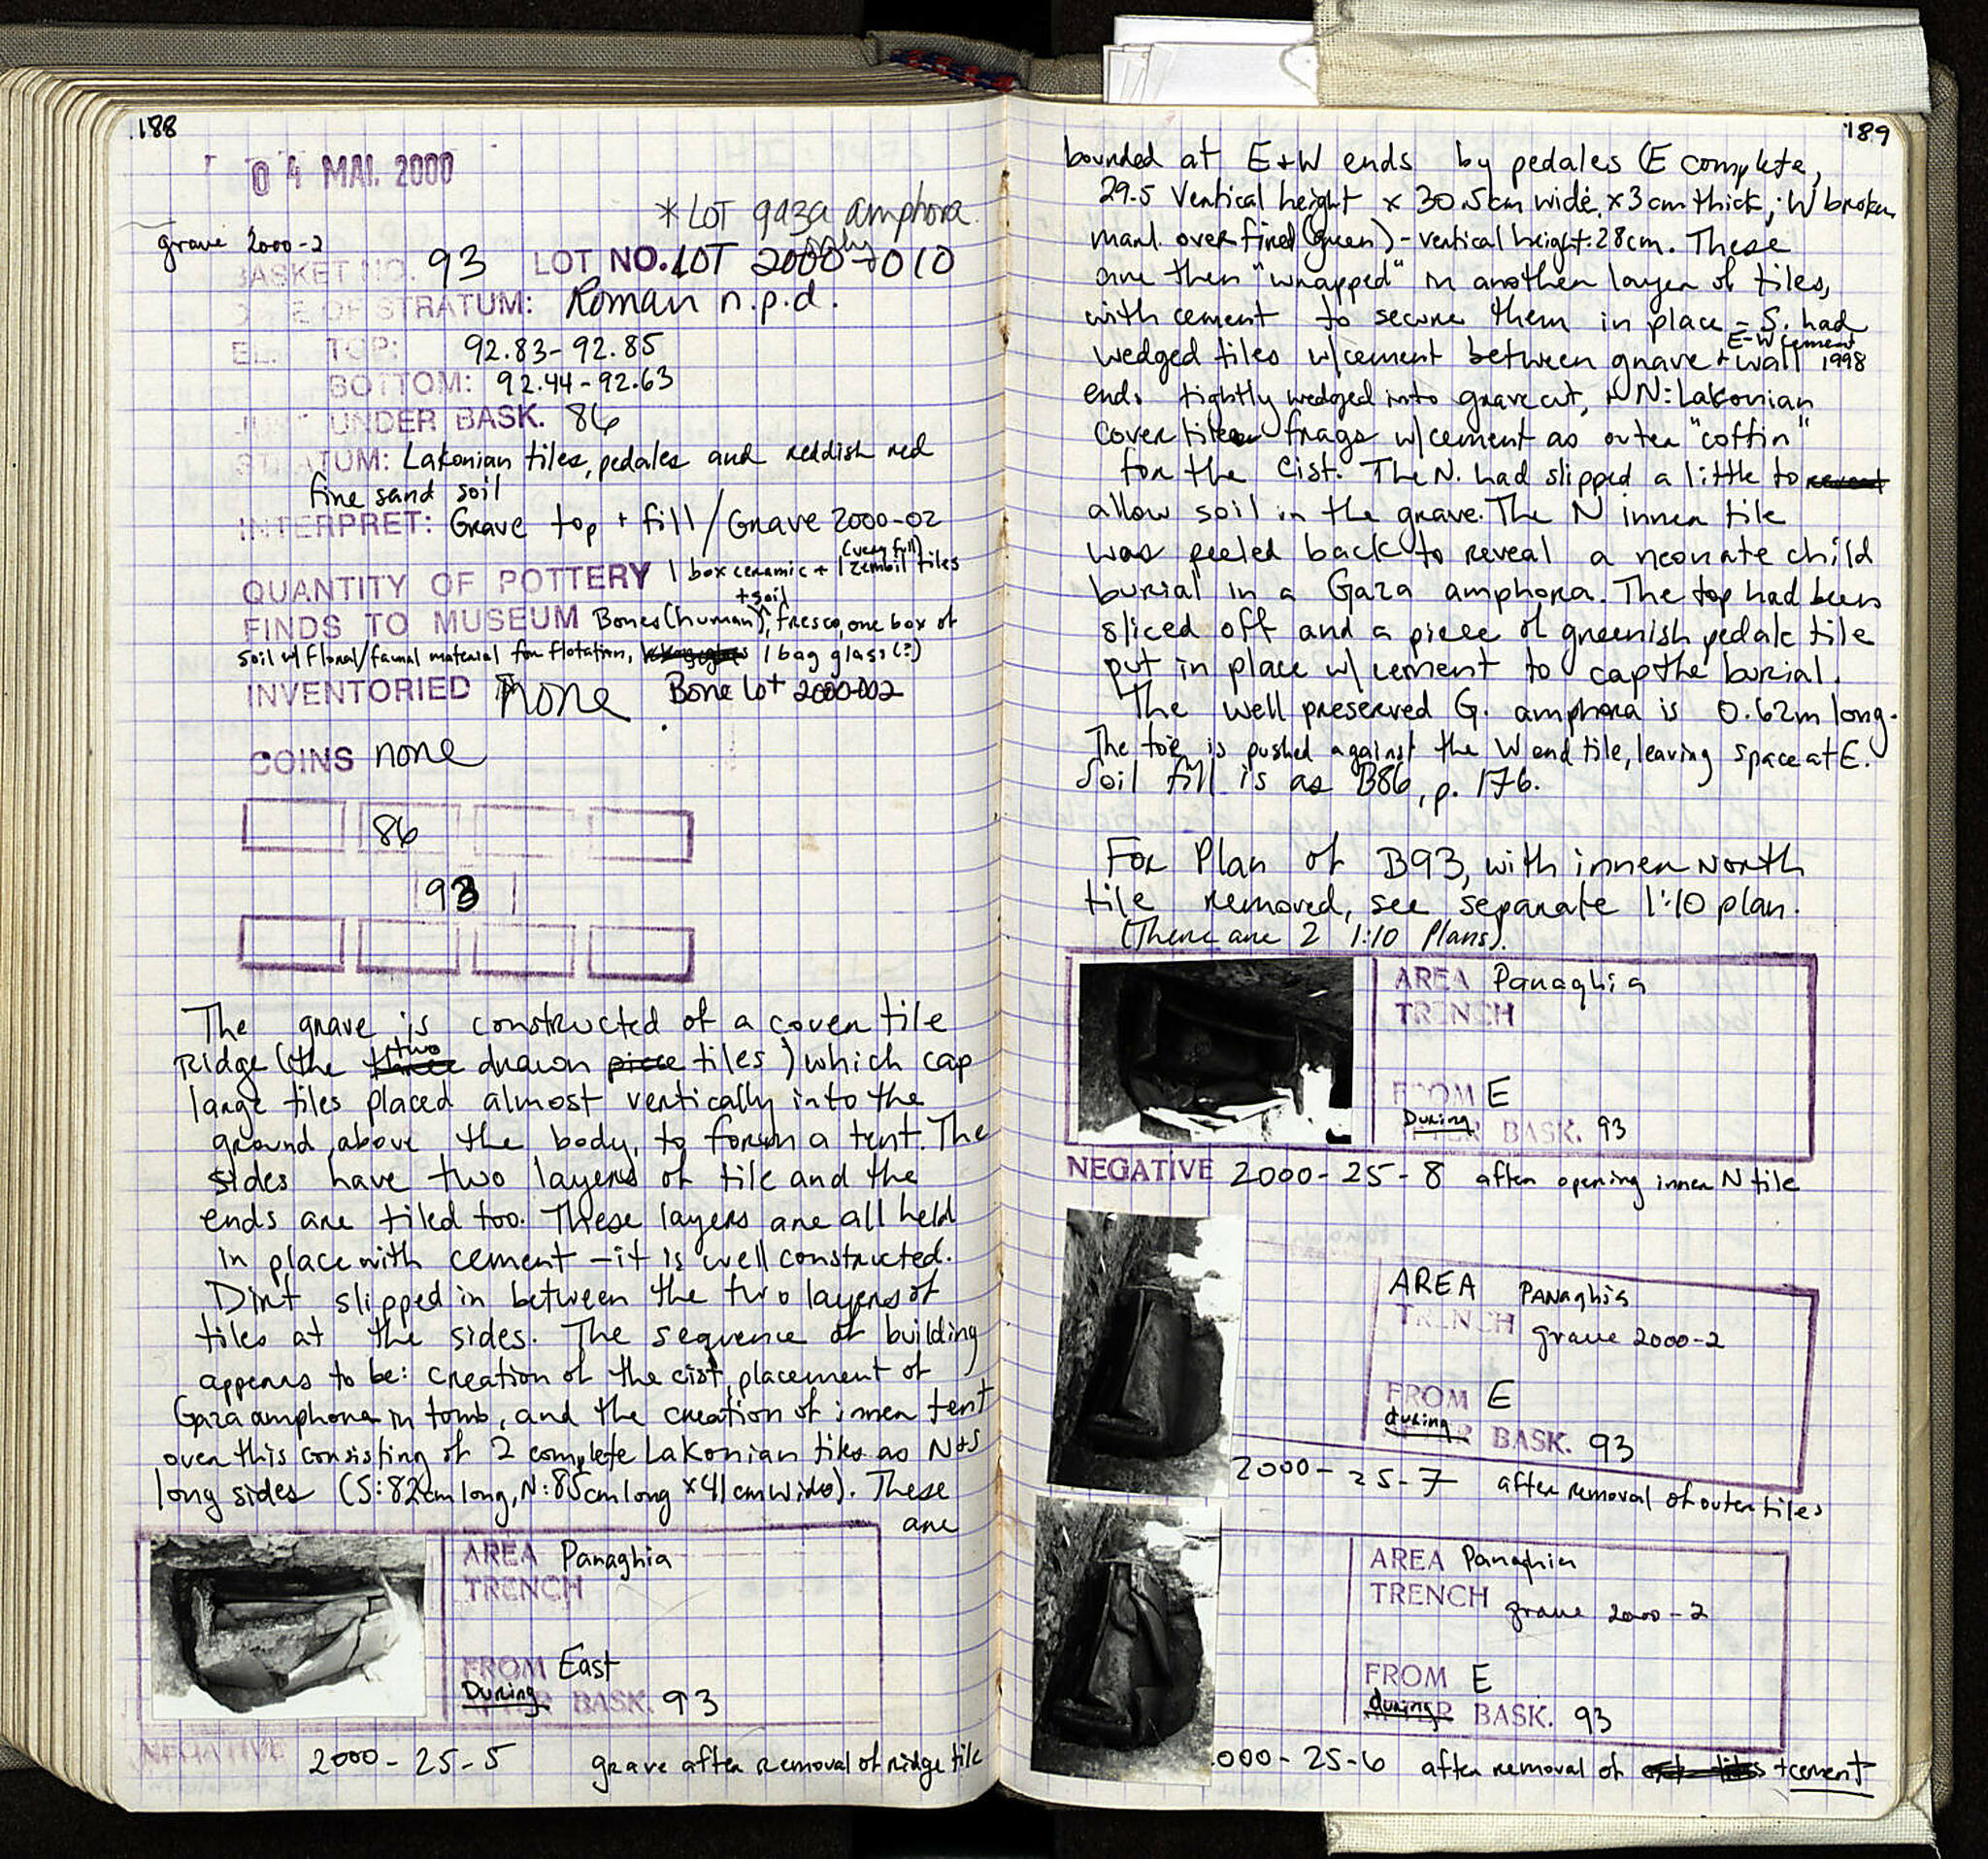 188
04 MAI. 2000
* LOT gaza amphora
only
grave 2000-2
BASKET NO. 93 LOT NO. LOT 2000-010
DATE OF STRATUM: Roman n.p.d.
EL. TOP: 92.83-92.85
BOTTOM: 92.44-92.63
JUST UNDER BASK. 86
STRATUM: Lakonian tiles, pedales and reddish red
fine sand soil
INTERPRET: Grave top + fill/Grave 2000-02
QUANTITY OF POTTERY 1 box ceramic + 1 (very full) zembil tiles
FINDS TO MUSEUM Bones (human) + soil, fresco, one box of
soil w/ floral/faunal material for flotation, 1 bag glass (?)
INVENTORIED none Bone Lot 2000-002
COINS none
86
93
The grave is constructed of a cover tile
Ridge (the three two drawn piece tiles) which cap
large tiles placed almost vertically into the
ground above the body, to form a tent. The
sides have two layers of tile and the
ends are tiled too. These layers are all held
in place with cement - it is well constructed.
Dirt slipped in between the two layers of
tiles at the sides. The sequence of building
appears to be: creation of the cist, placement of
Gaza amphora in tomb, and the creation of inner tent
over this consisting of 2 complete Lakonian tiles as N+S
long sides (S: 82cm long, N: 85cm long x 41cm wide). These
are
AREA Panaghia
TRENCH
FROM East
During AFTER BASK. 93
NEGATIVE 2000-25-5 grave after removal of ridge tile
189
bounded at E+W ends by pedales (E complete,
29.5 vertical height x 30.5cm wide, x 3cm thick; W broken
marl overfired (green) - vertical height: 28cm. These
are then "wrapped" in another layer of tiles,
with cement to secure them in place - S. had
wedged tiles w/cement between grave + E-W cement wall 1998
ends tightly wedged into grave cut, + N: Lakonian
cover tile frags w/cement as outer "coffin"
for the cist. The N. had slipped a little to reveal
allow soil in the grave. The N inner tile
was peeled back to reveal a neonate child
burial in a Gaza amphora. The top had been
sliced off and a piece of greenish pedale tile
put in place w/ cement to cap the burial.
The well preserved G. amphora is 0.62m long.
The toe is pushed against the W end tile, leaving space at E.
Soil fill is as B86, p. 176.
For Plan of B93, with inner North
tile removed, see separate 1:10 plan.
(There are 2 1:10 Plans).
AREA Panaghia
TRENCH
FROM E
During AFTER BASK. 93
NEGATIVE 2000-25-8 after opening inner N tile
AREA Panaghia
TRENCH grave 2000-2
FROM E
during AFTER BASK. 93
2000-25-7 after removal of outer tiles
AREA Panaghia
TRENCH grave 2000-2
FROM E
during AFTER BASK. 93
000-25-6 after removal of + cement